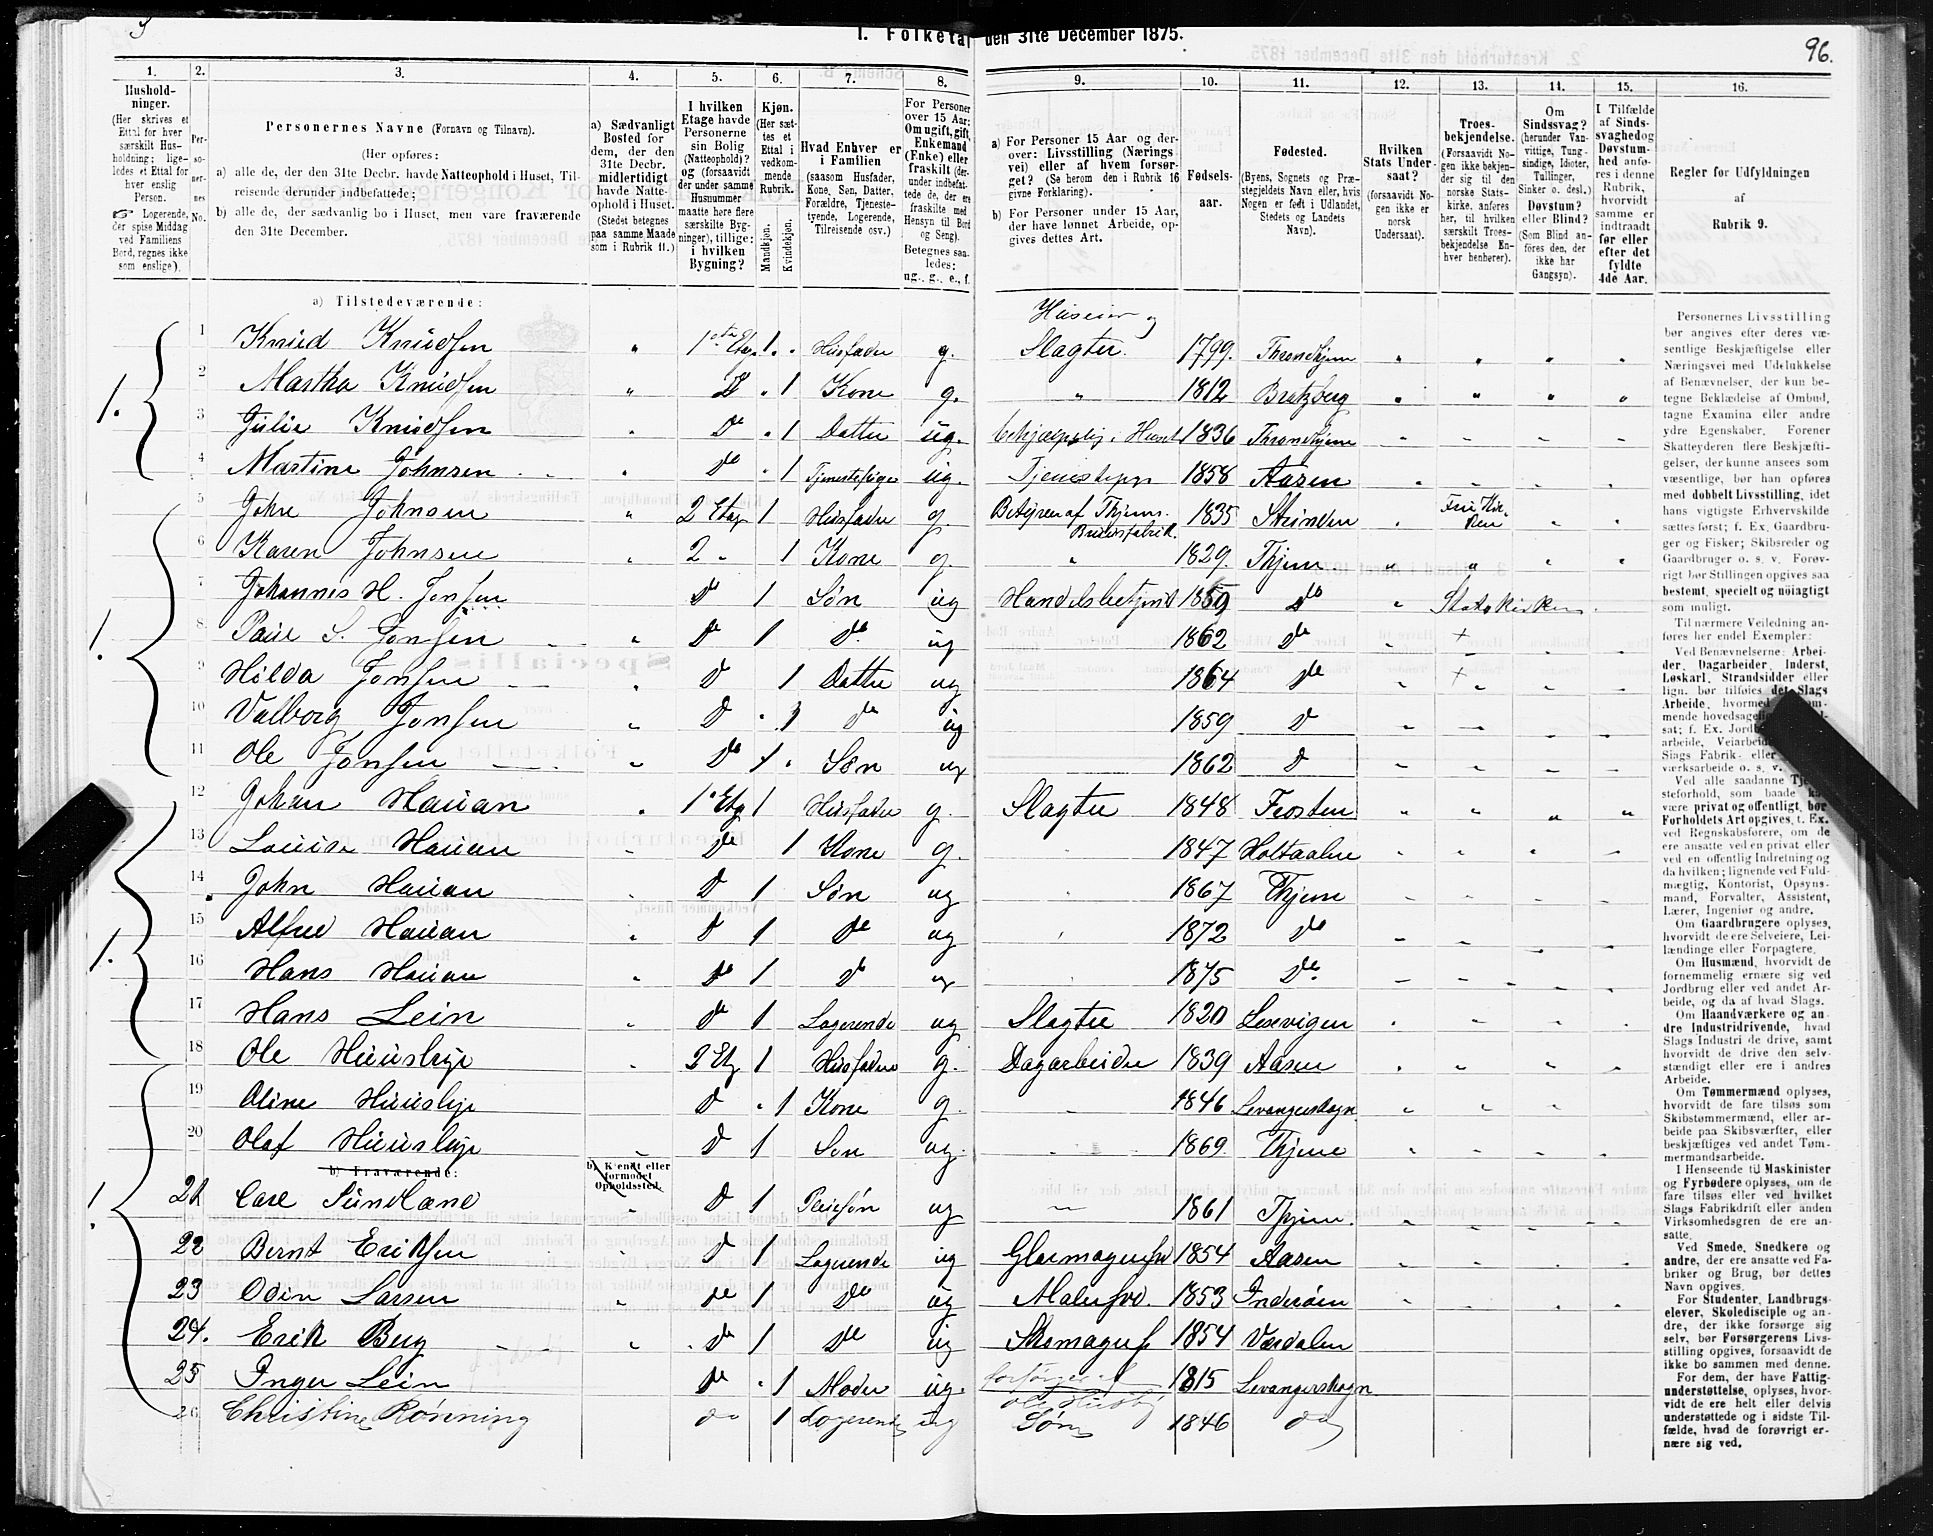 I. Folketal den 31te December 1875.
96.
1. 2. 3. 4. 5. 6. 7. 8. 9. 10. 11. 12. 13. 14. 15. 16.
Hushold-
ninger.
(Her skrives et
Ettal for hver
særskilt Hus-
holdning; lige-
ledes et Ettal for
hver enslig
Person.
☞ Logerende,
der spise Middag
ved Familiens
Bord, regnes ikke
som enslige).
Per-
so-
ner-
nes
No.
Personernes Navne (Fornavn og Tilnavn).
(Her opføres:
a) alle de, der den 31te Decbr. havde Natteophold i Huset, Til-
reisende derunder indbefattede;
b) alle de, der sædvanlig bo i Huset, men vare fraværende
den 31te December.
a) Sædvanligt
Bosted for
dem, der den
31te Decbr.
midlertidigt
havde Natte-
ophold i Huset.
(Stedet betegnes
paa samme Maade
som i Rubrik 11.)
I hvilken
Etage havde
Personerne
sin Bolig
(Natteophold)?
og (forsaavidt
der under samme
Husnummer
maatte høre flere
særskilte Byg-
ninger), tillige:
i hvilken
Bygning?
Kjøn.
(Her sæt-
tes et
Ettal i
vedkom-
mende
Rubrik.
Mandkjøn.
Kvindekjøn.
Hvad Enhver er
i Familien
(saasom Husfader,
Kone, Søn, Datter,
Forældre, Tjeneste-
tyende, Logerende,
Tilreisende osv.)
For Personer
over 15 Aar:
Om ugift, gift,
Enkemand
(Enke) eller
fraskilt (der-
under indbefat-
tede de, der ere
fraskilte med
Hensyn til Bord
og Seng).
Betegnes saa-
ledes:
ug., g., e., f.
a) For Personer 15 Aar og der-
over: Livsstilling (Nærings-
vei) eller af hvem forsør-
get? (Se herom den i Rubrik 16
givne Forklaring).
b) For Personer under 15 Aar,
der have lønnet Arbeide, op-
gives dettes Art.
Fødsels-
aar.
Fødested.
(Byens, Sognets og Præ-
stegjeldets Navn eller, hvis
Nogen er født i Udlandet,
Stedets og Landets
Navn).
Hvilken
Stats Under-
saat?
(forsaavidt No-
gen ikke er
norsk
Undersaat).
Troes-
bekjendelse.
(Forsaavidt No-
gen ikke bekjen-
der sig til den
norske Stats-
kirke, anføres
her, til hvilken
særskilt Troes-
bekjendelse En-
hver henhører).
Om
Sindssvag?
(herunder Van-
vittige, Tung-
sindige, Idioter,
Tullinger,
Sinker o. desl.)
Døvstum?
eller Blind?
(Som Blind an-
føres den, der
ikke har
Gangsyn).
I Tilfælde
af Sinds-
svaghed og
Døvstum-
hed anfø-
res i denne
Rubrik,
hvorvidt
samme er
indtraadt
før eller
efter det
fyldte
4de Aar.
Regler for Udfyldningen
af
Rubrik 9.
a) Tilstedeværende:
Huseier og
1. 1 Knud Knudsen 1ste Etag. 1 Husfader g. Slagter. 1799. Throndhjem
2 Martha Knudsen Do 1 Kone g. 1812 Bratsberg
3 Julie Knudsen Do 1 Datter ug. behjælpelig i Huset 1836 Throndhjem
4 Martine Johnsen Do 1 Tjenestepige ug. 1858 Aasen
1. 5 John Johnsen 2 Etag 1 Husfader g. Bestyrer af Thjems. 1835 Strinden Frie Kir-
ken
6 Karen Johnsen 2 1 Kone g. 1829. Thjem
7 Johannes H. Jonsen Do 1 Søn ug Handelsbetjent Do Statskirken
8 Paul S. Jonsen Do 1 Do ug 1862 Do
9 Hilda Jonsen D 1 Datter ug 1864 Do
10 Valborg Jonsen D 1 Do ug 1859 D
11 Ole Jonsen Do 1 Søn ug 1862 D
1. 12 Johan Hauan 1 Etg 1 Husfader g. Slagter 1848 Frosten
13 Louise Hauan Do 1 Kone g. 1847 Holtaalen
14 John Hauan D 1 Søn ug 1867 Thjem
15 Alfred Hauan D 1 Do ug 1872 Do
16 Hans Hauan Do 1 Do ug 1875 Do
17 Hans Lein Do 1 Logerende ug Slagter 1820 Lexvigen
1. 18 Ole 2 Etg 1 Husfader g. Dagarbeider 1839 Aasen
19 Oline D 1 Kone g. 1846 Levangerskogn
20 Olaf D 1 Søn ug. 1869. Thjem
b) Fraværende:
b) Kjendt eller
formodet
Opholdssted.
21 Carl Sundland D 1 Pleiesøn ug 1861 Thjem.
22 Bernt Eriksen D 1 Logerende ug Glarmagersv 1854 Aasen
23 Odin Larsen Do 1 Do ug Malersvd. 1853 Inderøen
24. Erik Berg Do 1 Do ug Skomagers 1854 Værdalen
25 Inger Lein Do 1 Moder ug. forsørges af 1815 Levangerskogn
26 Christine Rønning do 1 Logerende ug Søn 1846 do
Personernes Livsstilling
bør angives efter deres væ-
sentlige Beskjæftigelse eller
Næringsvei med Udelukkelse
af Benævnelser, der kun be-
tegne Beklædelse af Ombud,
tagne Examina eller andre
ydre Egenskaber. Forener
Skatteyderen flere Beskjæfti-
gelser, der kunne ansees som
væsentlige, bør han opføres
med dobbelt Livsstilling, idet
hans vigtigste Erhvervskilde
sættes først; f. Ex. Gaardbru-
ger og Fisker; Skibsreder og
Gaardbruger o. s. v. Forøv-
rigt bør Stillingen opgives saa
bestemt, specielt og nöiagtigt
som muligt.
Til nærmere Veiledning an-
føres her endel Exempler:
Ved Benævnelserne: Arbei-
der, Dagarbeider, Inderst,
Løskarl, Strandsidder eller
lign. bør tilføies det Slags
Arbeide, hvormed
mende hovedsage
sat; f. Ex. Jord
arbeide, Veiarbeide
Slags Fabrik- eller
værksarbeide o. s. v.
Ved alle saadanne
steforhold, som baade
være privat og offentligt, bør
Forholdets Art opgives, t. Ex.
ved Regnskabsførere, om de
ere ansatte ved en privat eller
ved en offentlig Indretning og
da hvilken; lignende ved Fuld-
mægtig, Kontorist, Opsyns-
mand, Forvalter, Assistent,
Lærer, Ingeniør og andre.
Om Gaardbrugere oplyses,
hvorvidt de ere Selveiere, Lei-
lændinge eller Forpagtere.
Om Husmænd, hvorvidt de
fornemmelig ernære sig ved
Jordbrug eller ved andet Ar-
beide, og da af hvad Slags.
Om Haandværkere og an-
dre Industridrivende, hvad
Slags Industri de drive, samt
hvorvidt de drive den selv-
stændigt eller ere i andres
Arbeide.
Om Tømmermænd oplyses,
hvorvidt de fare tilsøs som
Skibstømmermænd, eller ar-
beide paa Skibsværfter, eller
beskjæftiges ved andet Tøm-
mermandsarbeide.
I Henseende til Maskinister
og Fyrbødere oplyses, om de
fare tilsøs eller ved hvilket
Slags Fabrikdrift eller anden
Virksomhedsgren de ere an-
satte.
Ved Smede, Snedkere og
andre, der ere ansatte ved Fa-
briker og Brug, bør dettes
Navn opgives.
For Studenter, Landbrugs-
elever, Skoledisciple og an-
dre, der ikke forsørge sig
selv, bør Forsørgerens Livs-
stilling opgives, forsaavidt de
ikke bo sammen med denne.
For dem, der have Fattig-
understøttelse, oplyses, hvor-
vidt de ere helt eller delvis
understøttede og i sidste Til-
fælde, hvad de forøvrigt er-
nære sig ved.